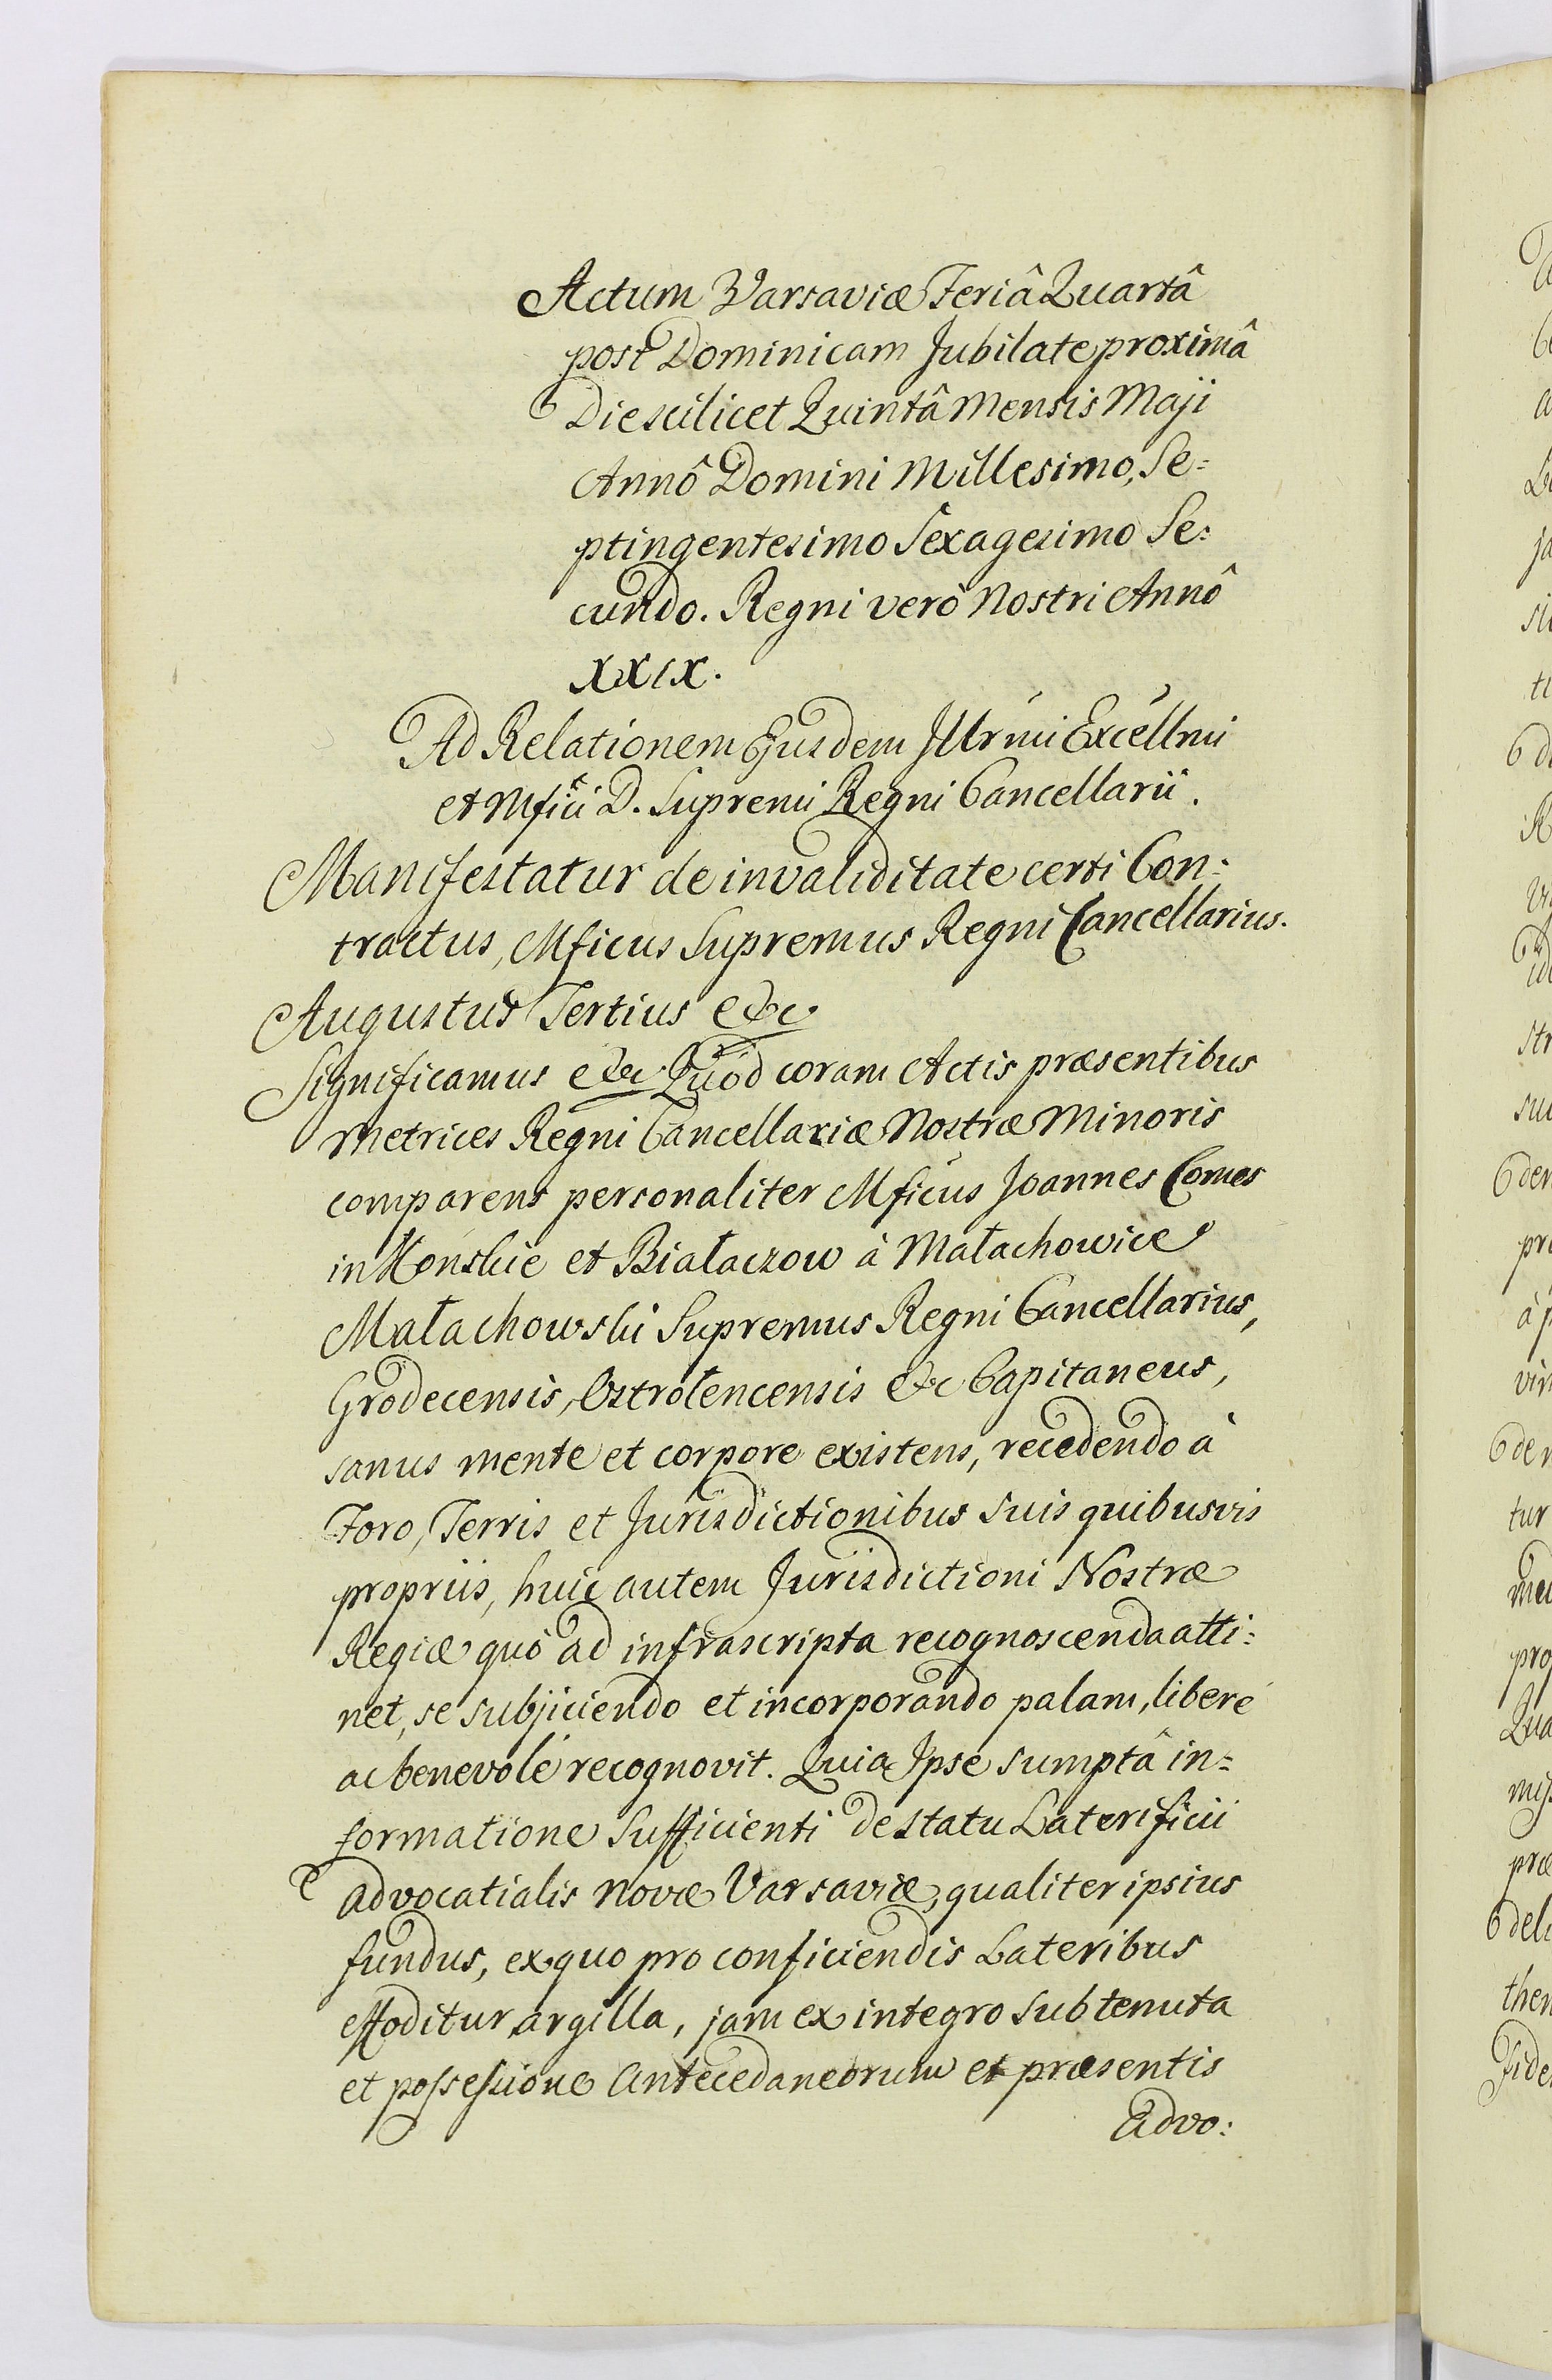 Actum Varsaviæ Feriâ Quartâ
post Dominicam Jubilate proximâ
Die scilicet Quintâ Mensis Maji
Annô Domini Millesimo, Se=
ptingentesimo Sexagesimo Se=
cundo. Regni verò Nostri Annô
XXIX.
Ad Relationem Ejusdem Illrmi Excellmi
et Mfici D. Supremi Regni Cancellarii.
Manifestatur de invaliditate certi Con=
tractus, Mficus Supremus Regni Cancellarius.
Augustus Tertius &c
Significamus &c Quòd coram Actis præsentibus
Metrices Regni Cancellariæ Nostræ Minoris
comparens personaliter Mficus Joannes Comes
in Konskie et Białaczow à Małachowice
Małachowski Supremus Regni Cancellarius,
Grodecensis, Ostrołencensis &c Capitaneus,
sanus mente et corpore existens, recedendo à
Foro, Terris et Jurisdictionibus suis quibusvis
propriis, huic autem Jurisdictioni Nostræ
Regiæ quò ad infrascripta recognoscenda atti=
net, se subjiciendo et incorporando palam, liberè
ac benevolè recognovit. Quia Ipse sumptâ in=
formatione sufficienti de statu Laterificii
Advocatialis Novæ Varsaviæ, qualiter ipsius
fundus, ex quo pro conficiendis Lateribus
effoditur argilla, jam ex integro sub tenuta
et possessione Antecedaneorum et præsentis
Advo: